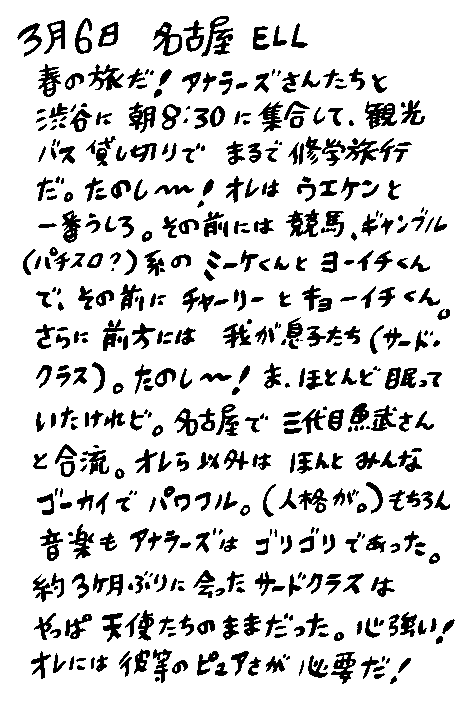 3月6日 名古屋 ELL
春の旅だ！アナラーズさんたちと
渋谷に朝8:30に集合して、観光
バス貸し切りで まるで修学旅行
だ。たのし〜〜！オレは ウエケンと
一番うしろ。その前には 競馬、ギャンブル
(パチスロ？)系の ミーケくんと ヨーイチくん
で、その前に チャーリーと キョーイチくん。
さらに 前方には 我が息子たち(サード・
クラス)。たのし〜〜！ま、ほとんど 眠って
いたけれど。名古屋で 三代目魚武さん
と合流。オレら以外は ほんと みんな
ゴーカイで パワフル。(人格が。)もちろん
音楽も アナラーズは ゴリゴリであった。
約3ヶ月ぶりに会ったサードクラスは
やっぱ 天使たちのままだった。心強い！
オレには 彼等のピュアさが 必要だ！